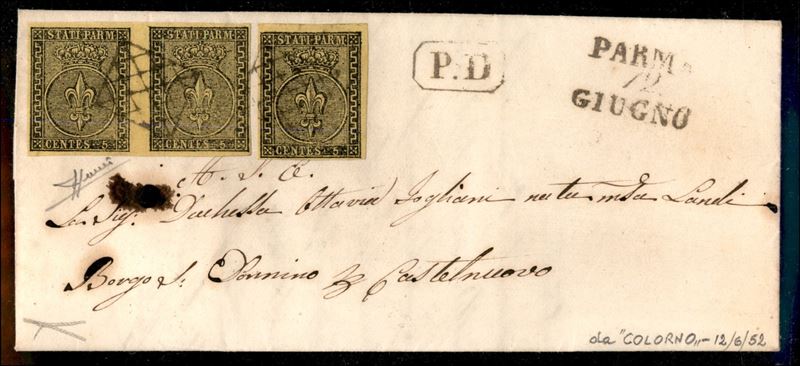 STATI PARM. STATI PARM. STATI PARM.
CENTES. 5 CENTES. 5 CENTES. 5
P.D
PARMA
12
GIUGNO
A. S. E.
La Sig. Duchessa Ottavia Fogliani nata Landi
Borgo S. Donnino per Castelnuovo
da "COLORNO" - 12/6/52